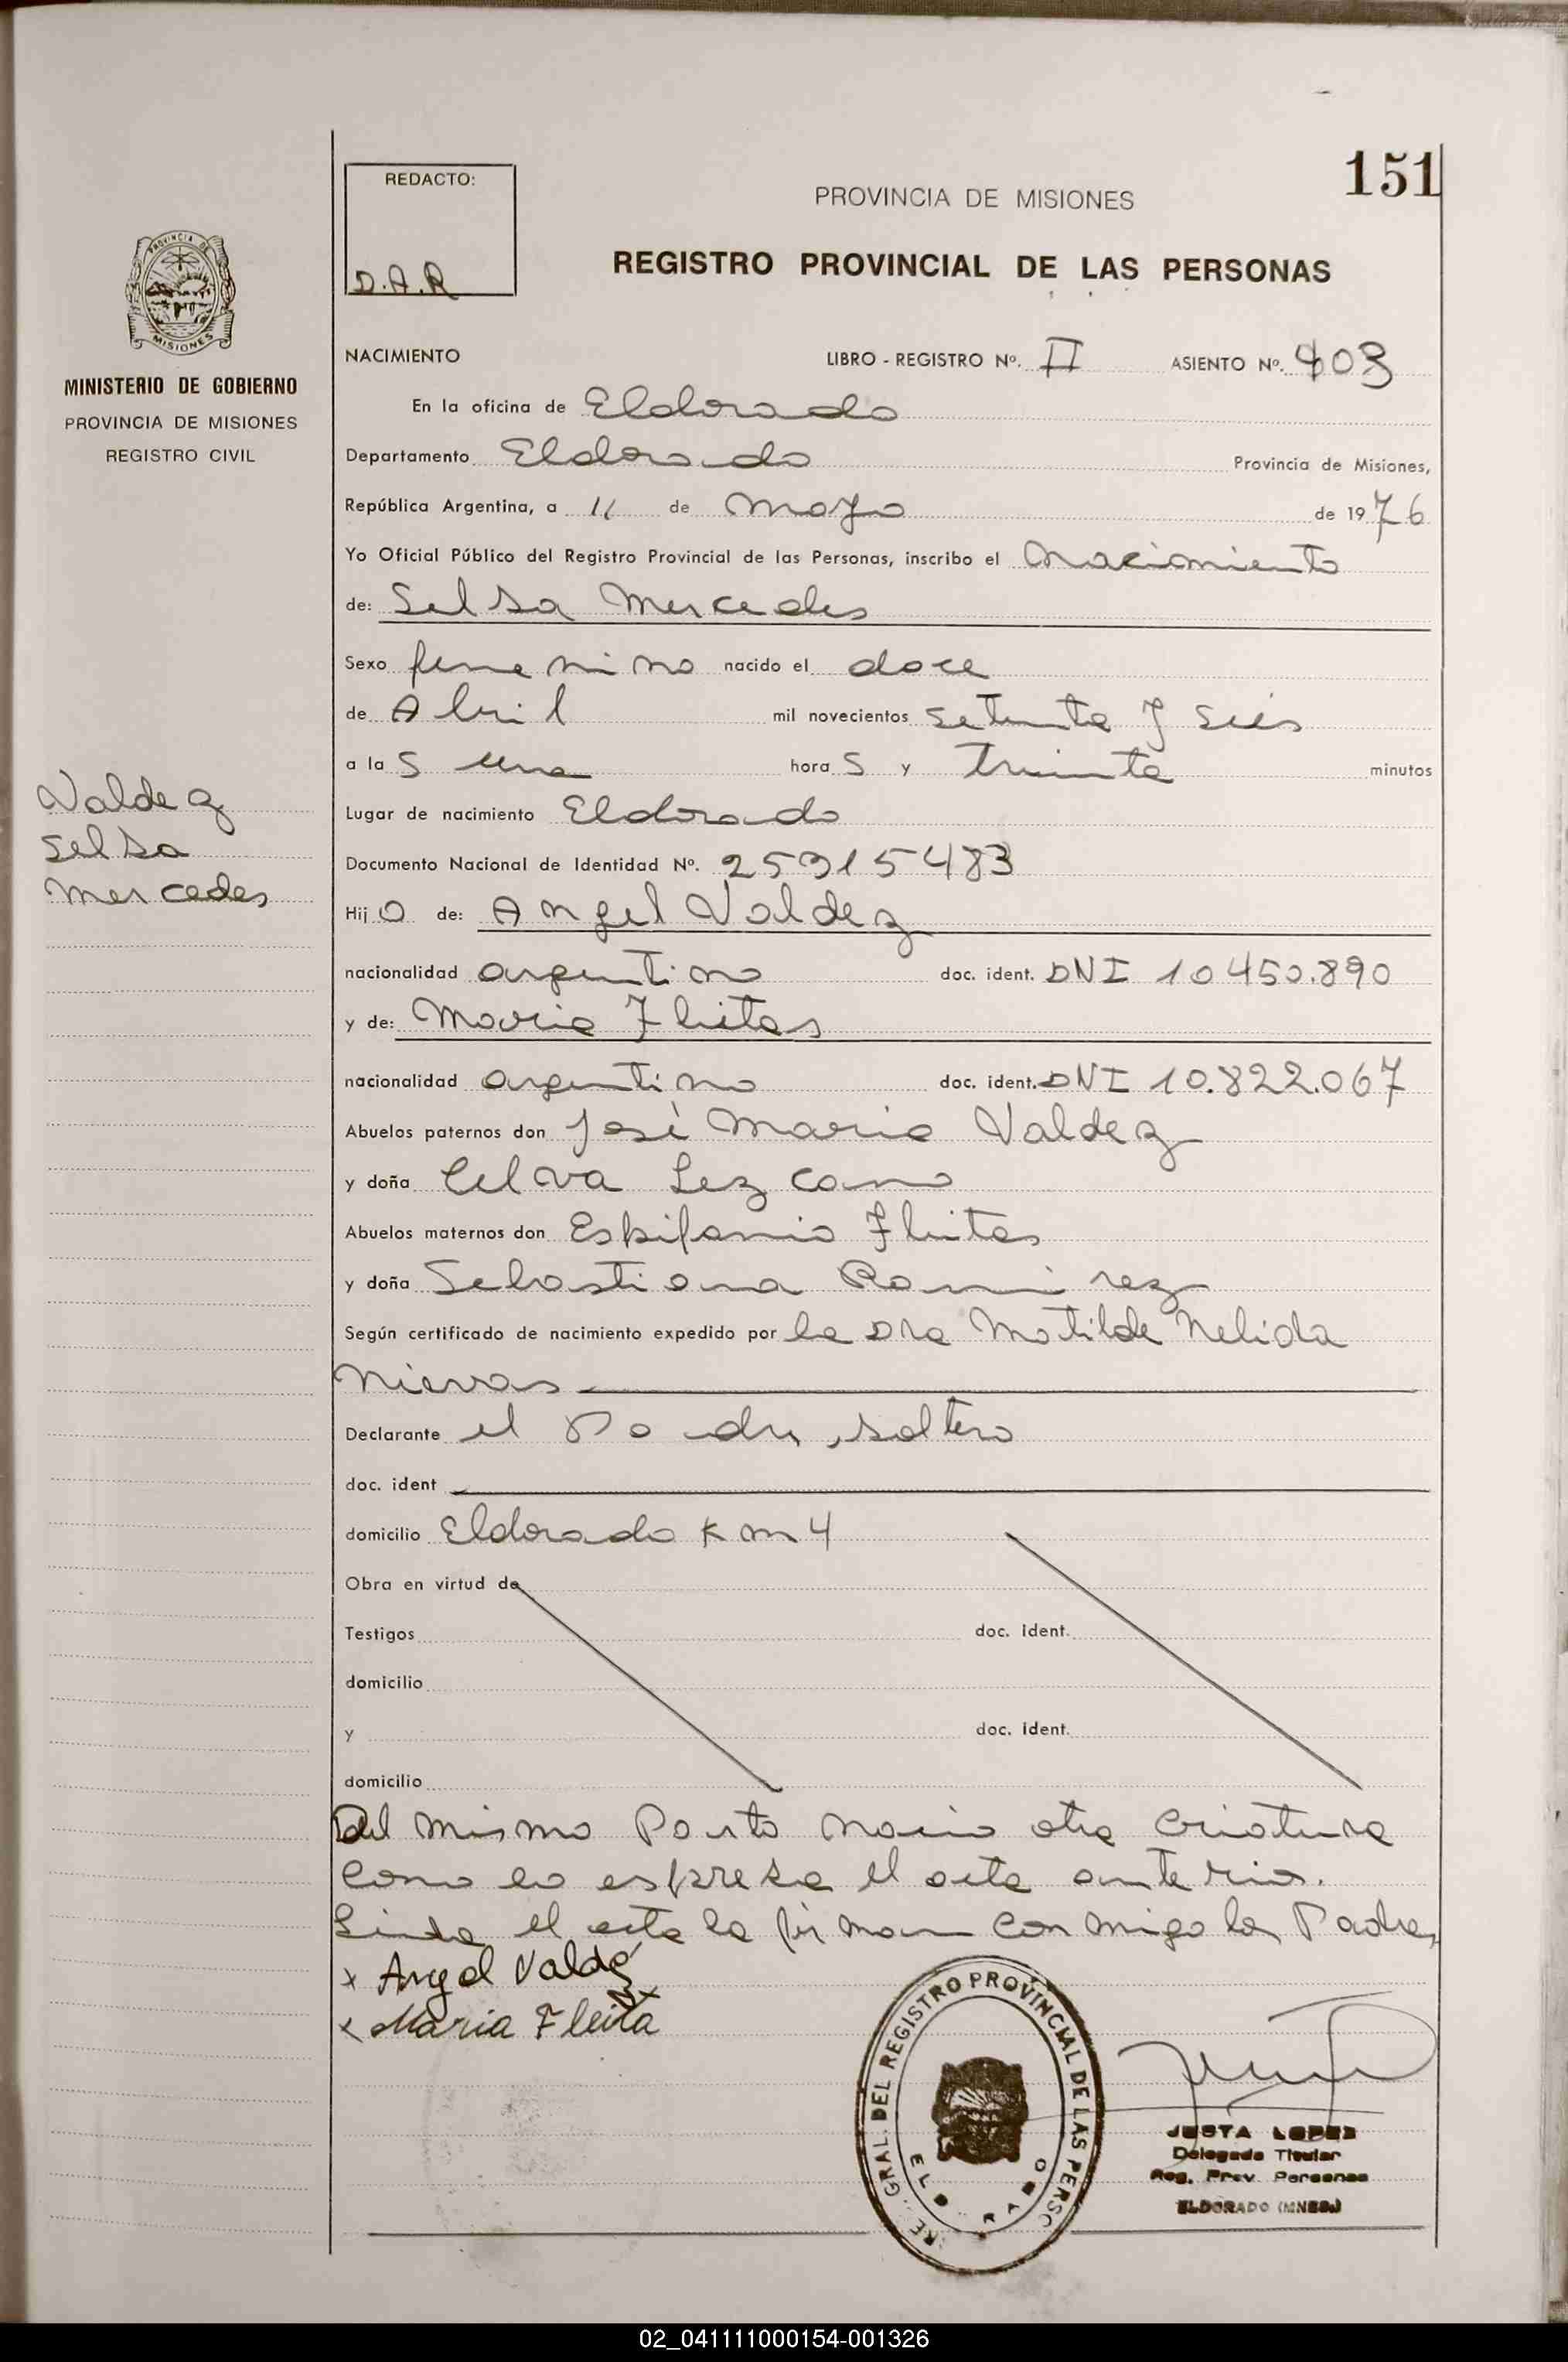 151
REDACTO:
D.A.R
PROVINCIA DE MISIONES
REGISTRO PROVINCIAL DE LAS PERSONAS
PROVINCIA DE
MISIONES
MINISTERIO DE GOBIERNO
PROVINCIA DE MISIONES
REGISTRO CIVIL
NACIMIENTO LIBRO - REGISTRO Nº. II ASIENTO Nº. 403
En la oficina de Eldorado
Departamento Eldorado Provincia de Misiones,
República Argentina, a 11 de mayo de 1976
Yo Oficial Público del Registro Provincial de las Personas, inscribo el nacimiento
de: Selsa Mercedes
Sexo femenino nacido el doce
de Abril mil novecientos setenta y seis
a la s una hora s y treinta minutos
Lugar de nacimiento Eldorado
Valdez
Selsa
Mercedes
Documento Nacional de Identidad Nº. 25315483
Hij o de: Angel Valdez
nacionalidad argentino doc. ident. DNI 10450.890
y de: Maria Fleitas
nacionalidad argentino doc. ident. DNI 10.822.067
Abuelos paternos don José Maria Valdez
y doña Celva Lezcano
Abuelos maternos don Espifanio Fleitas
y doña Sebastiana Ramirez
Según certificado de nacimiento expedido por la Dra Matilde Nelida
Nievas
Declarante el Padre, soltero
doc. ident
domicilio Eldorado Km 4
Obra en virtud de
Testigos doc. ident.
domicilio
y doc. ident.
domicilio
Del mismo Parto nacio otra criatura
como lo espresa el acta anterior.
Leida el acta la firman conmigo los Padres
x Angel Valdez
x Maria Fleita
GRAL. DEL REGISTRO PROVINCIAL DE LAS PERSO
JUSTA LOPEZ
Delegada Titular
Reg. Prov. Personas
ELDORADO (MNES.)
02_041111000154-001326